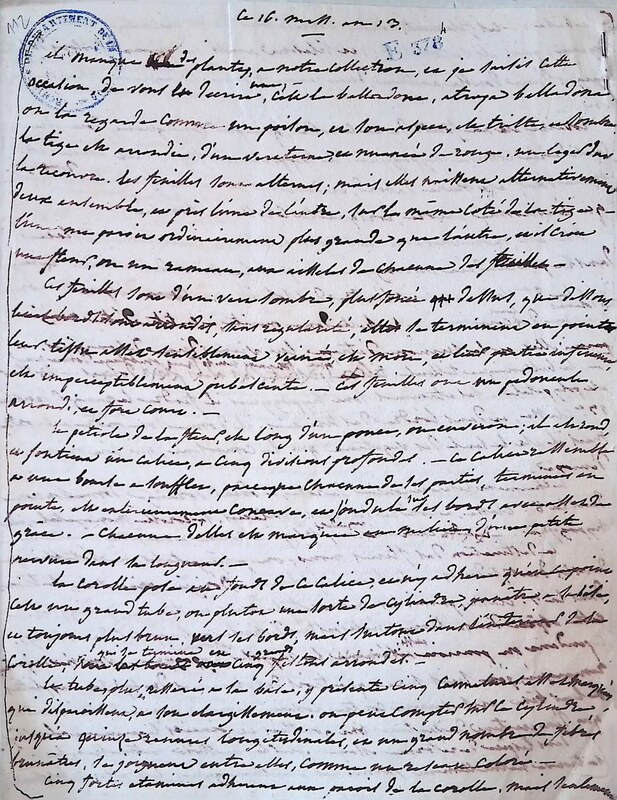 112
ce 16. mess. an 13.
E 378
4
il manque des plantes, a notre collection, et je saisis cette
occasion, de vous en decrire une, c'est la belladone, atropa belladona
on la regarde comme un poison, et son aspect, est triste, et sombre
la tige est arrondie, d'un vert terne, et nuancée de rouge, un leger duvet
la recouvre. les feuilles sont alternes; mais elles naissent alternativement
deux ensemble, et près l'une de l'autre, sur le même coté de la tige -
l'une me paroit ordinairement plus grande que l'autre, et il croit
une fleur, ou un rameau, aux aisselles de chacune des feuilles -
Ces feuilles sont d'un vert sombre, plus foncé dessus, que dessous
leurs bords sont arrondis, sans regularité, elles se terminent en pointe
leur tissu assez sensiblement veiné, est mou, et leur partie inferieure
est imperceptiblement pubescente. - Ces feuilles ont un pedoncule
arrondi, et fort court. -
le petiole de la fleur, est long d'un pouce, ou environ, il est rond,
et soutient un calice, a cinq divisions profondes. - Ce calice ressemble
a une bourse a souflets, parceque chacune de ses parties, terminées en
pointe, est interieurement concave, et joint les bords avec assez de
grâce. - chacune d'elles est marquée au milieu d'une petite
nervure dans sa longueur. -
la corolle posée au fond de ce calice, et n'y adhere qu'en un point
c'est un grand tube, ou plutot une sorte de cylindre, a la base,
et toujours plus brun, vers les bords, mais surtout dans l'interieur de la
corolle, qui se termine en cinq grands festons arrondis. -
le tube plus resserré, a la base, y présente cinq cannelures assez marquées
que disparoissent, a son elargissement. on peut compter sur ce cylindre,
jusqu'a quinze rainures longitudinales, et un grand nombre de fibres
brunatres, se joignent entre elles, comme un reseau coloré. -
Cinq fortes etamines adherent aux parois de la corolle, mais seulement